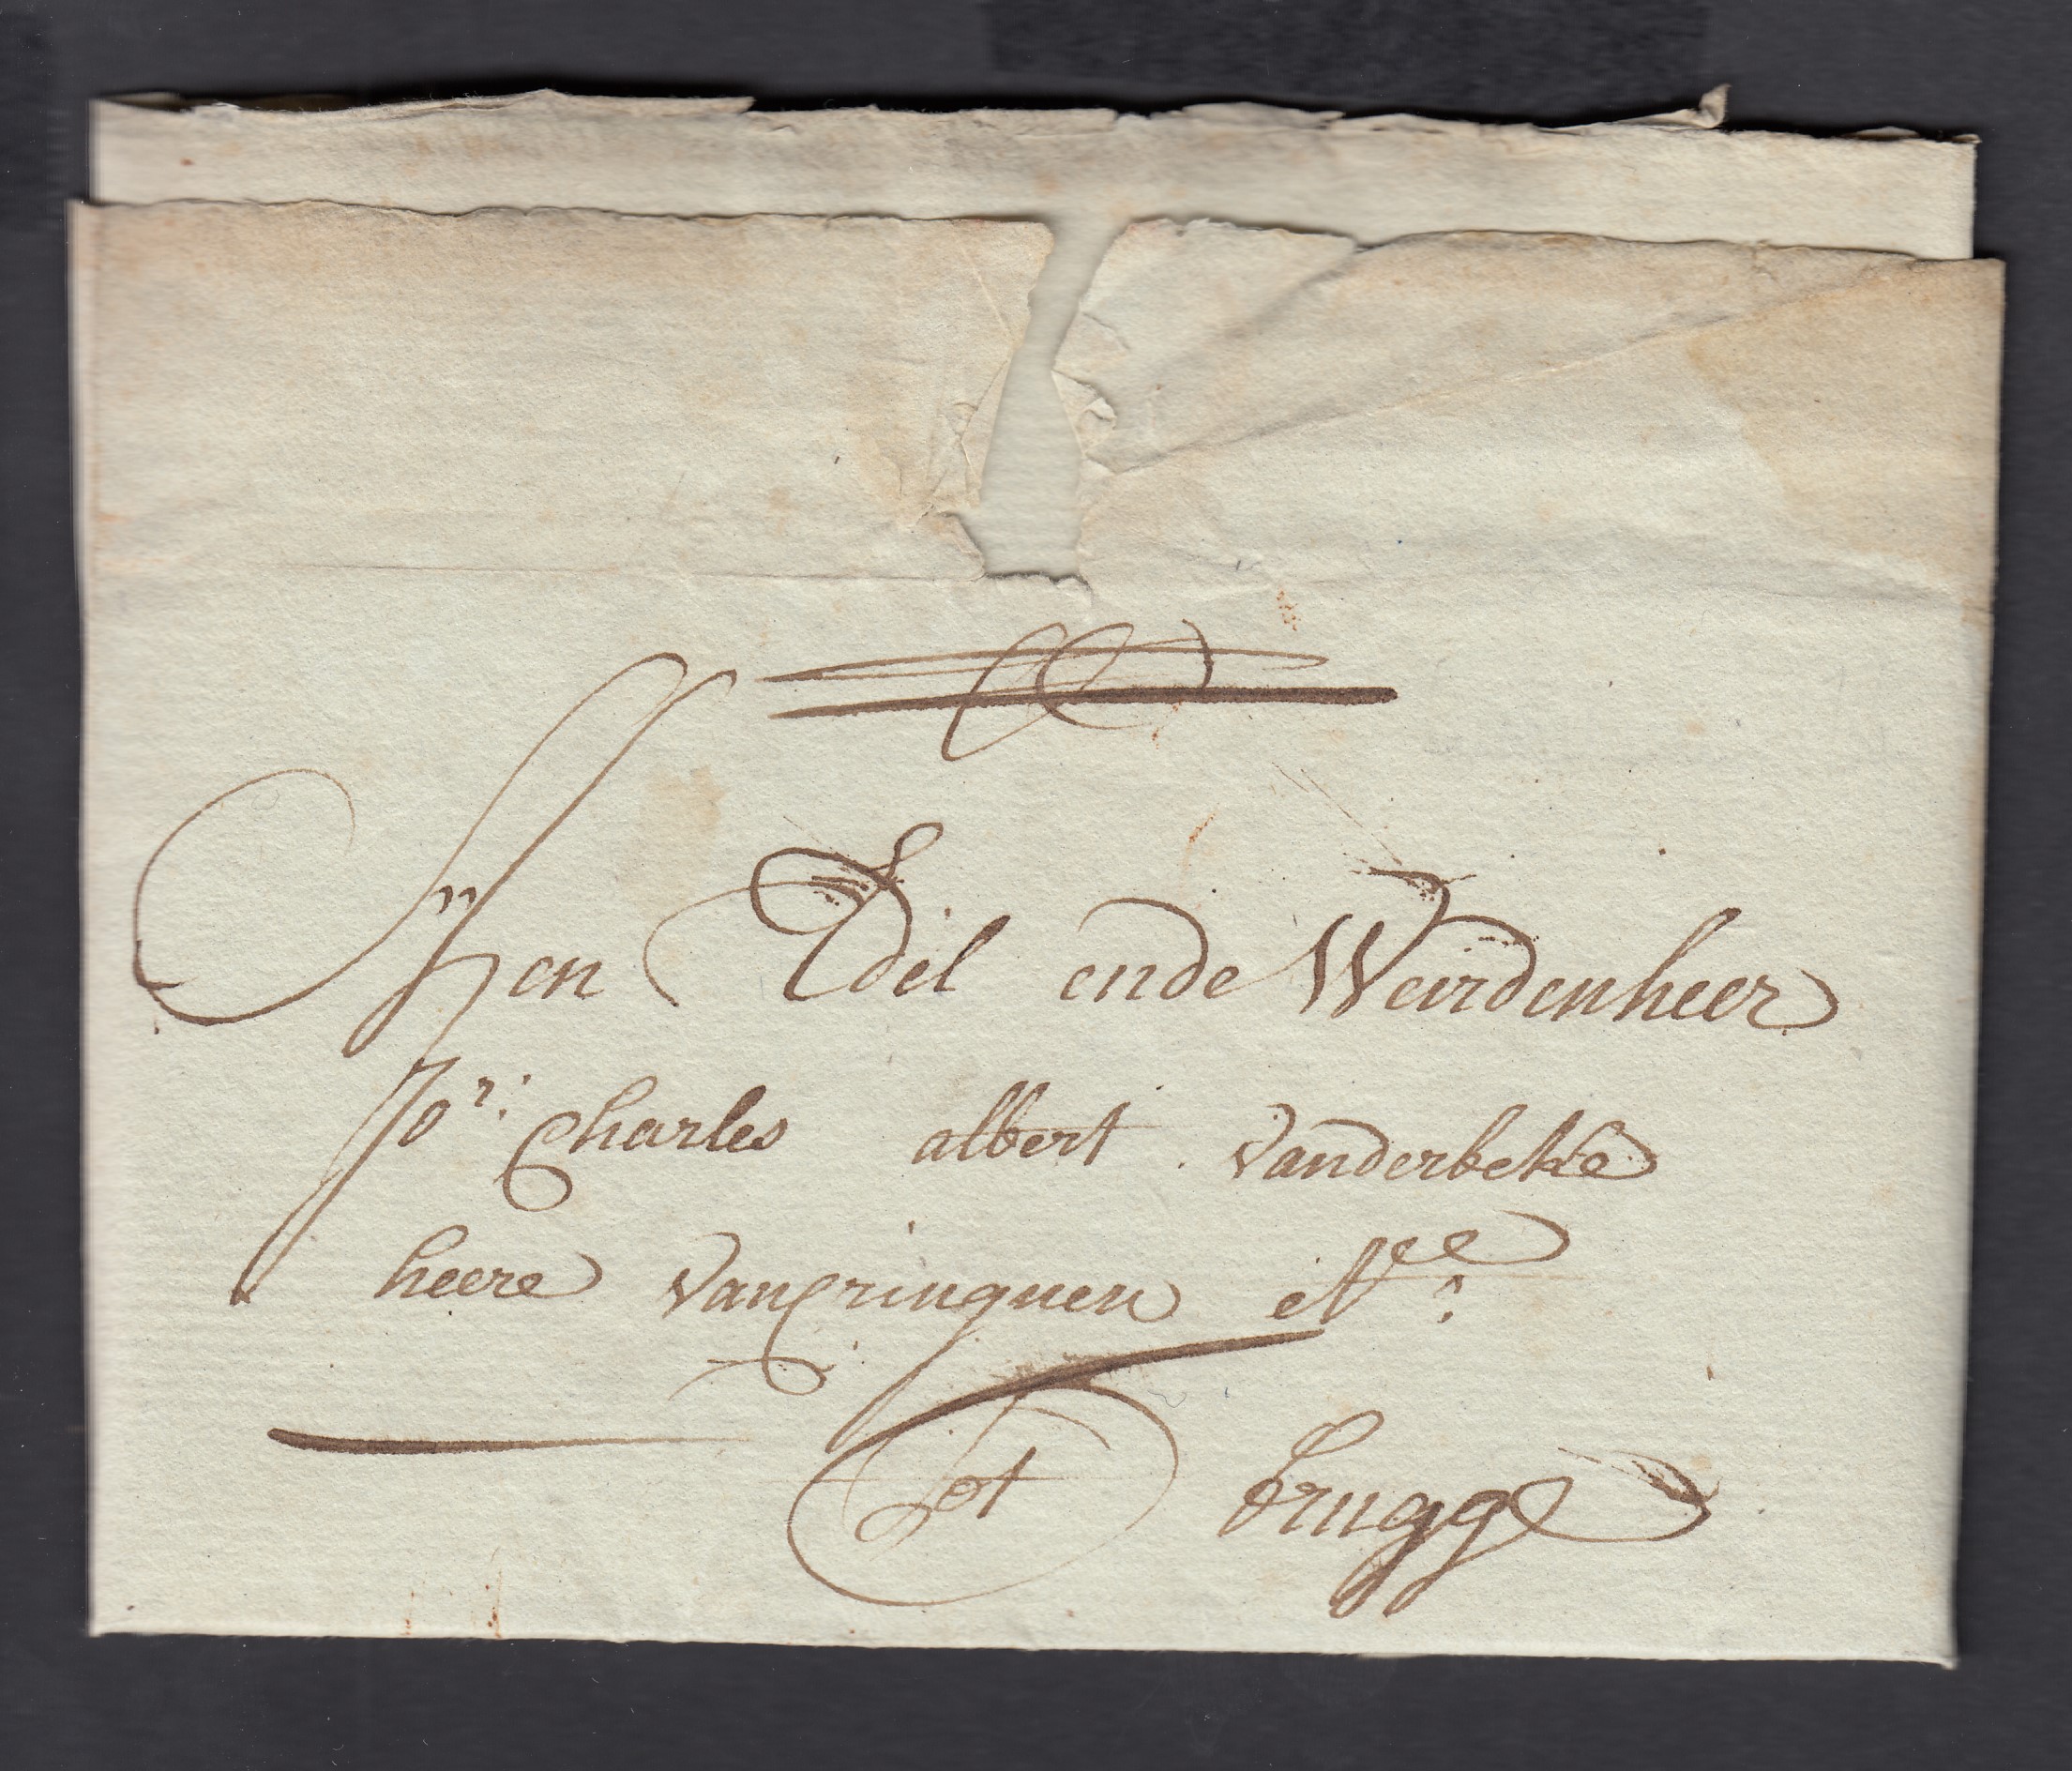 Mijn Edel ende Weirdenheer
Jor: Charles albert vanderbeke
heere vancringuen etc:
tot brugge